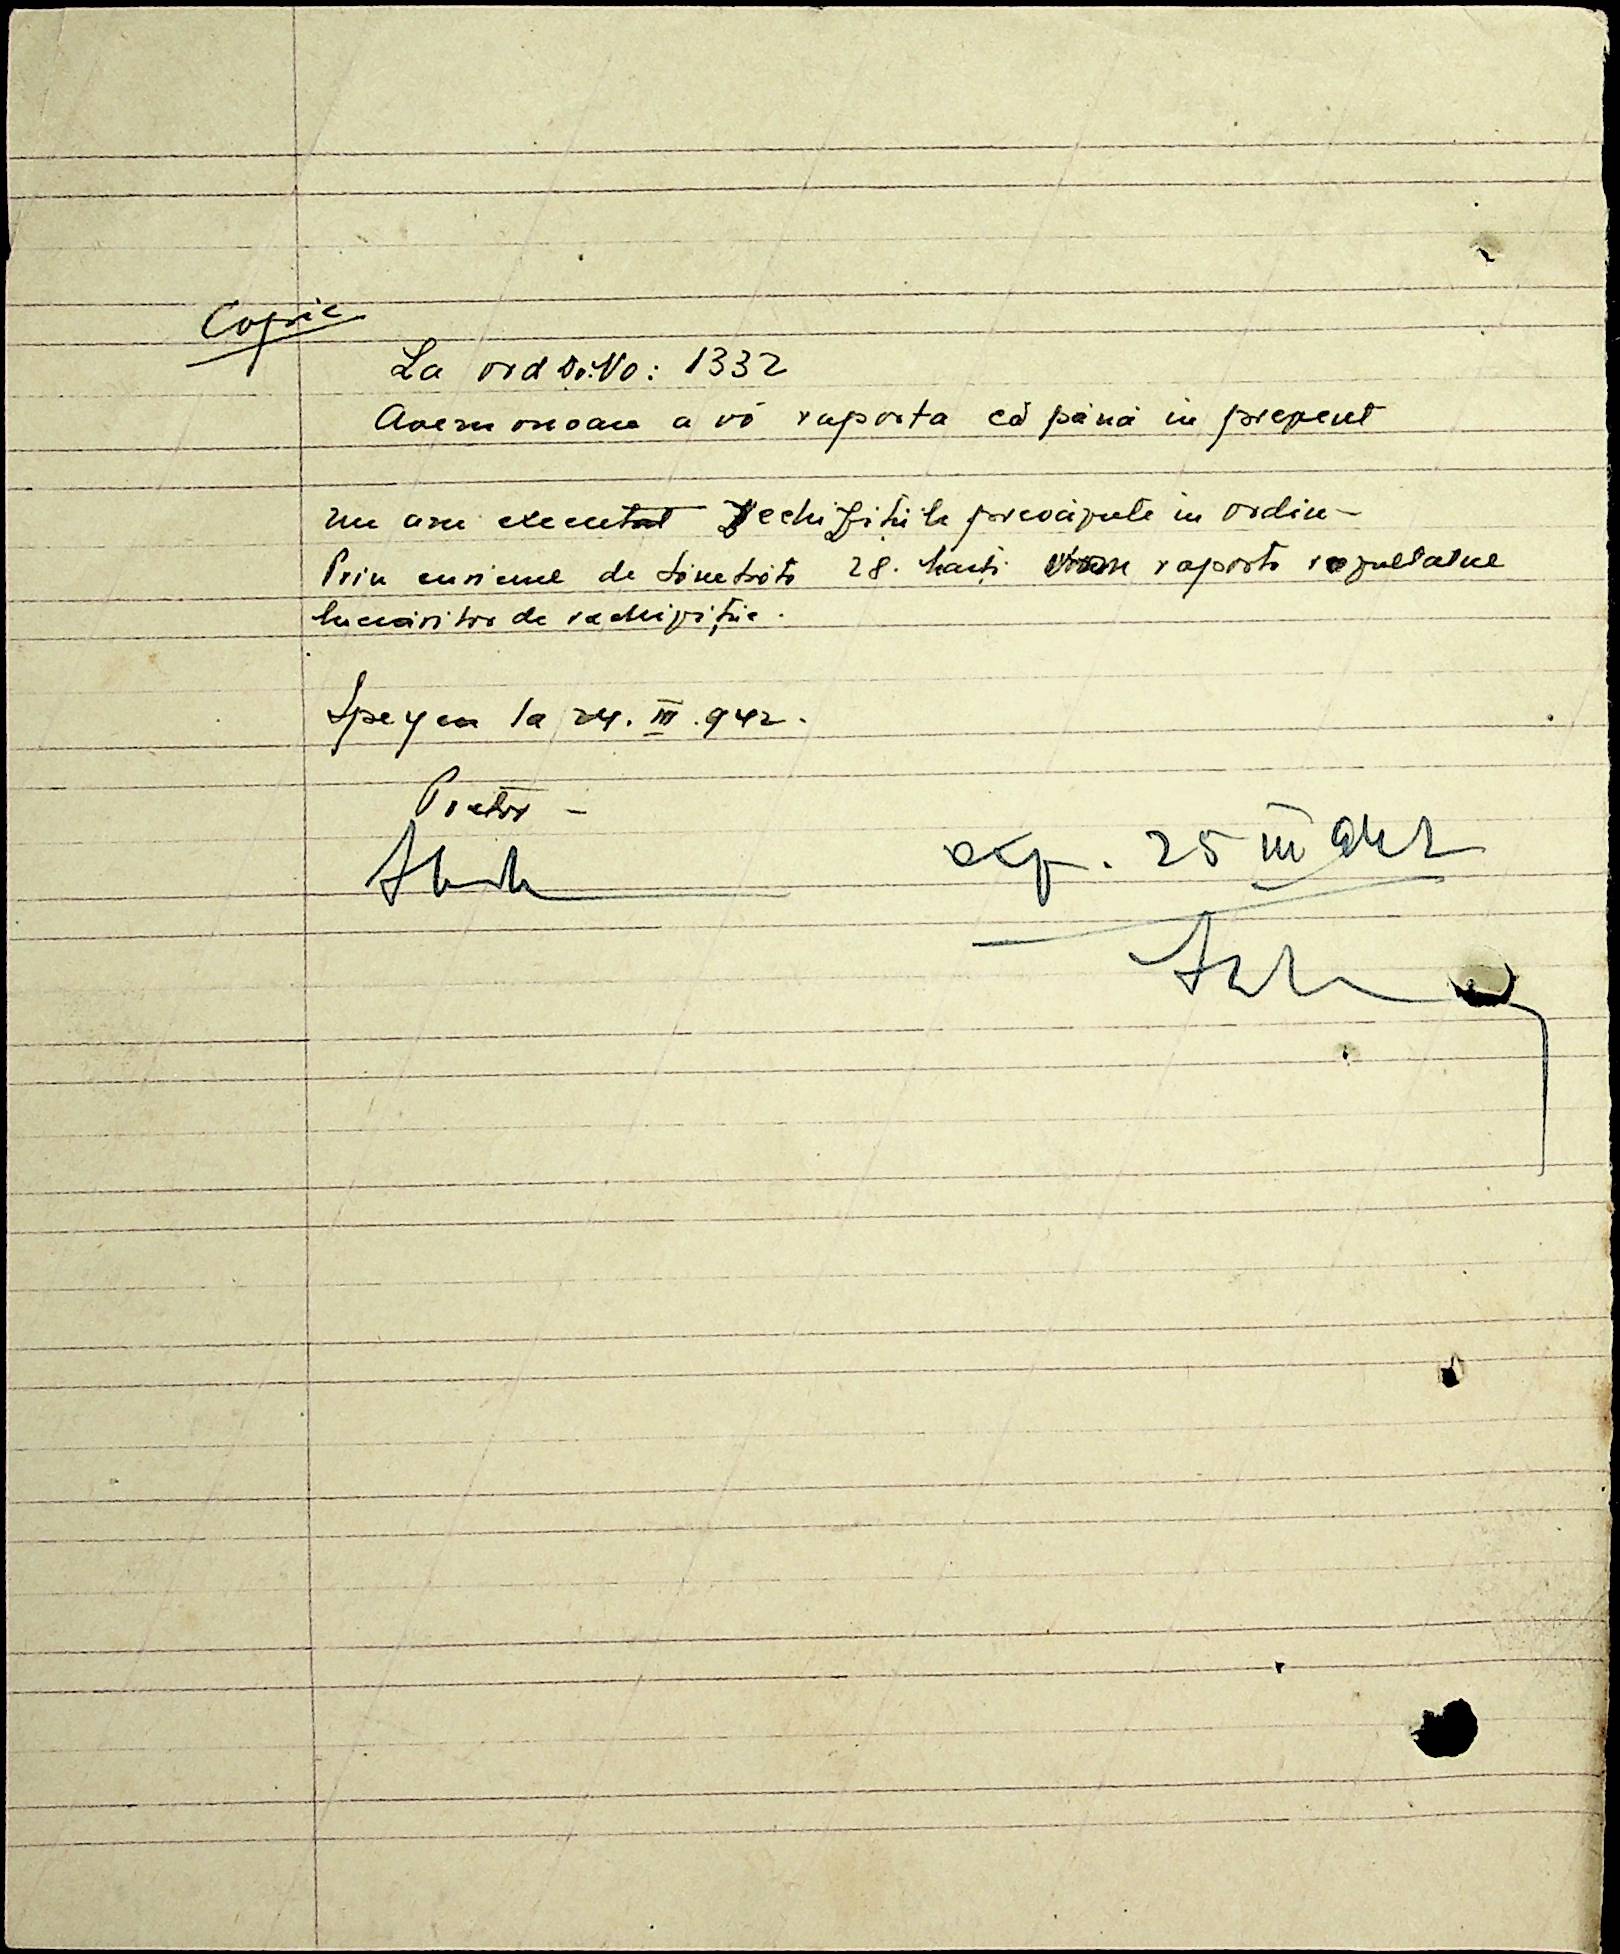 Copie
La ord Dv. No: 1332
Avem onoare a vă raporta că până in prezent
nu am executat rechiziţiile prevăzute in ordin -
Prin curierul de Sâmbătă 28. Martie vom raporta rezultatul
lucrărilor de rechiziţie.
la 24. III. 942.
Pretor -
exp. 25 III 942